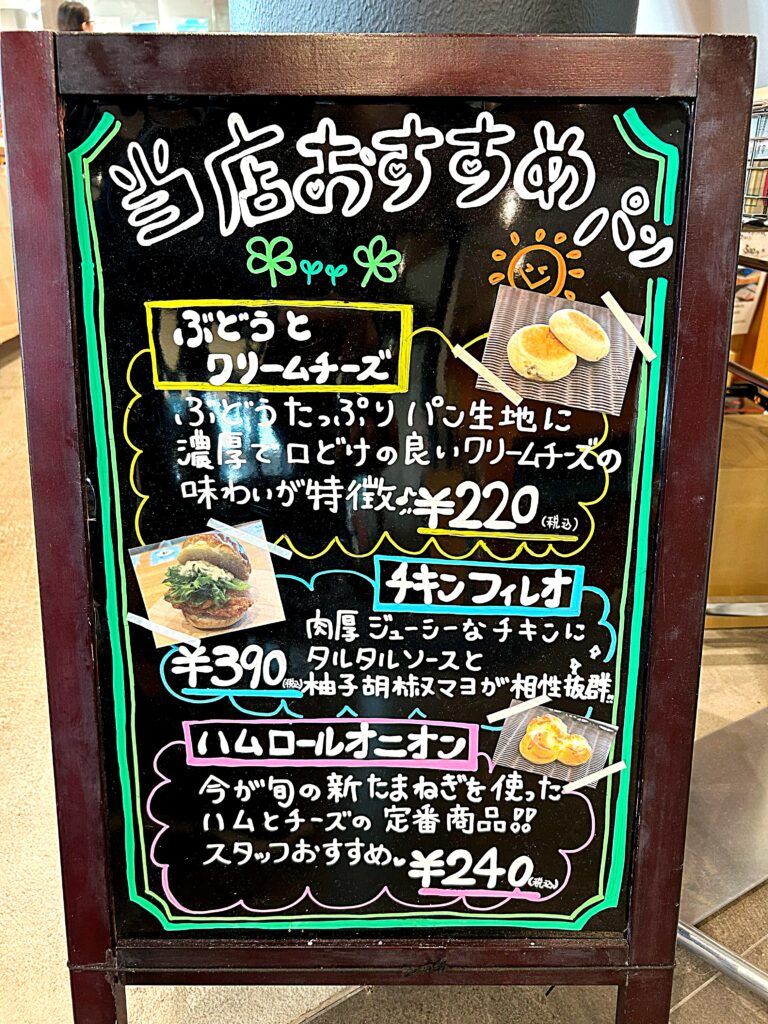 当店おすすめ
パン
ぶどうと
クリームチーズ
ぶどうたっぷり パン生地に
濃厚で口どけの良いクリームチーズの
味わいが特徴♪
¥220(税込)
チキンフィレオ
肉厚ジューシーなチキンに
タルタルソースと
柚子胡椒マヨが相性抜群!!
¥390(税込)
ハムロールオニオン
今が旬の新たまねぎを使った
ハムとチーズの定番商品!!
スタッフおすすめ♥
¥240(税込)